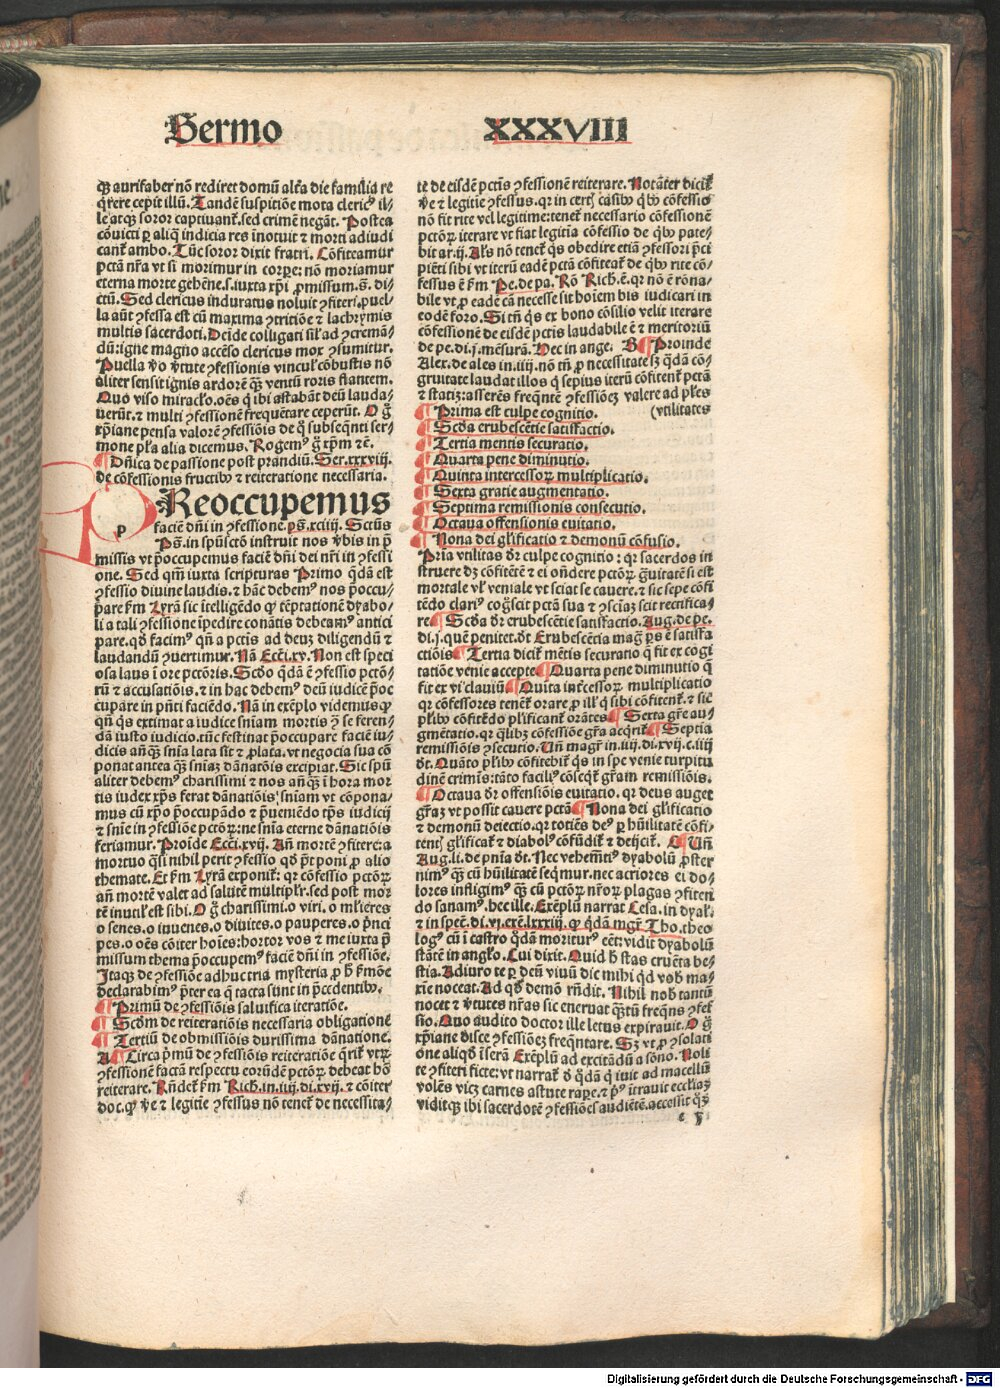 Sermo XXXVIII
qꝫ aurifaber nō rediret domū altᷓa die familia re
q̄rere cepit illū. Tandē suspitiōe mota clericꝰ il⸗
le atqꝫ soror captiuant̄. sed crimē negāt. Postea
cōuicti ꝑ aliq̄ indicia res inotuit ⁊ morti adiudi
cant̄ ambo. Tūc soror dixit fratri. Cōfiteamur
pctā nr̄a vt si morimur in corpe: nō moriamur
eterna morte gehēne. s. iuxta xp̄i ꝓmissum. s̄. di⸗
ctū. Sed clericus induratus noluit ꝯfiteri. puel⸗
la aūt ꝯfessa est cū maxima ꝯtritiōe ⁊ lachrymis
multis sacerdoti. Deīde colligati sil̄ ad ꝯcremā⸗
dū: igne magno accēso clericus mox ꝯsumitur.
Puella v̄o v̄tute ꝯfessionis vincul̄ cōbustis nō
aliter sensit ignis ardorē qꝫ ventū roris flantem.
Quo viso miracl̄o. oēs q̄ ibi astabāt deū lauda⸗
uerūt. ⁊ multi ꝯfessionē frequētare ceperūt. O ḡ
xp̄iane pensa valorē ꝯfessiōis de q̄ subseqn̄ti ser⸗
mone pl̄a alia dicemus. Rogemꝰ ḡ xp̄m ⁊c̄.
¶ Dn̄ica de passione post prandiū. Ser. xxxviij.
de cōfessionis fructibꝰ ⁊ reiteratione necessaria.
PReoccupemus
faciē dn̄i in ꝯfessione. ps̄. xciiij. Sctūs
Ps̄. in spūsctō instruit nos v̄bis in p̄
missis vt p̄occupemus faciē dn̄i dei nr̄i in ꝯfessi
one. Sed qm̄ iuxta scripturas Primo q̄dā est
ꝯfessio diuine laudis. ⁊ hāc debemꝰ nos p̄occu⸗
pare ẜm Lyrā sic ītelligēdo ꝙ tēptatione dyabo⸗
li a tali ꝯfessione īpedire conātis debeamꝰ antici
pare. qd̄ facimꝰ qn̄ a pctīs ad deuꝫ diligendū ⁊
laudandū ꝯuertimur. Nā Ecc̄i. xv. Non est speci
osa laus ī ore pctōris. Scd̄o q̄dā ē ꝯfessio pctō⸗
rū ⁊ accusatiōis. ⁊ in hac debemꝰ deū iudicē p̄oc
cupare in pn̄ti faciēdo. Nā in exēplo videmus ꝙ
qn̄ qs̄ extimat a iudice sn̄iam mortis ꝯ se feren⸗
dā iusto iudicio. tūc festinat p̄occupare faciē iu⸗
dicis an̄qꝫ sn̄ia lata sit ⁊ ꝓlata. vt negocia sua cō
ponat antea qꝫ sn̄iaꝫ dānatōis excipiat. Sic spū
aliter debemꝰ charissimi ⁊ nos an̄qꝫ ī hora mor
tis iudex xp̄s ferat dānatiōis sn̄iam vt cōpona⸗
mus cū xp̄o p̄occupādo ⁊ p̄ueniēdo tp̄s iudicij
⁊ sn̄ie in ꝯfessiōe pctōꝝ: ne sn̄ia eterne dānatiōis
feriamur. Proīde Ecc̄i. xvij. An̄ mortē ꝯfitere: a
mortuo qs̄i nihil perit ꝯfessio qd̄ p̄t poni ꝓ alio
themate. Et ẜm Lyrā exponit̄: qr ꝯfessio pctōꝝ
an̄ mortē valet ad salutē multipl̄r. sed post mor
tē inutil̄ est sibi. O ḡ charissimi. o viri. o ml̄ieres
o senes. o iuuenes. o diuites. o pauperes. o p̄nci
pes. o oēs cōiter hoīes: hortor vos ⁊ me iuxta p̄
missum thema p̄occupemꝰ faciē dn̄i in ꝯfessiōe.
Itaqꝫ de ꝯfessiōe adhuc tria mysteria ꝓ h̄ ẜmōe
declarabimꝰ p̄ter ea q̄ tacta sunt in p̄cedentibꝰ.
¶ Primū de ꝯfessiōis salutifica iteratiōe.
¶ Scd̄m de reiteratiōis necessaria obligatione
¶ Tertiū de obmissiōis durissima dānatione.
A ¶ Circa p̄mū de ꝯfessiōis reiteratiōe q̄rit̄ vtꝝ
ꝯfessionē factā respectu eorūdē pctōꝝ debeat hō
reiterare. Rn̄det̄ ẜm Rich. in. iiij. di. xvij. ⁊ cōiter
doc. ꝙ v̄e ⁊ legitie ꝯfessus nō tenet̄ de necessita⸗
te de eisdē pctīs ꝯfessionē reiterare. Notāter dicit̄
v̄e ⁊ legitie ꝯfessus. qr in certꝭ casibꝰ qͥbꝰ cōfessio
nō fit rite vel legitime: tenet̄ necessario cōfessionē
pctōꝝ iterare vt fiat legitia cōfessio de qͥbꝰ pate⸗
bit ar. ij. Als̄ nō tenet̄ qs obedire etiā ꝯfessori p̄ci
piēti sibi vt iterū eadē pctā cōfiteat̄ de qͥbꝰ rite cō⸗
fessus ē ẜm Pe. de pa. Rō Rich. ē. qr nō ē rōna⸗
bile vt ꝓ eadē cā necesse sit hoīem bis iudicari in
eodē foro. Si tn̄ qs ex bono cōsilio velit iterare
cōfessionē de eisdē pctīs laudabile ē ⁊ meritoriū
de pe. di. j. mēsurā. Hec in ange. B ¶ Proinde
Alex. de ales in. iiij. nō tn̄ ꝓ necessitate sꝫ q̄dā cō⸗
gruitate laudat illos q̄ sepius iterū cōfitent̄ pctā
⁊ statiꝫ: asserēs freqn̄tē ꝯfessiōeꝫ valere ad pl̄es
¶ Prima est culpe cognitio. (vtilitates
¶ Scd̄a erubescētie satisfactio.
¶ Tertia mentis securatio.
¶ Quarta pene diminutio.
¶ Quinta intercessoꝝ multiplicatio.
¶ Sexta gratie augmentatio.
¶ Septima remissionis consecutio.
¶ Octaua offensionis euitatio.
¶ Nona dei gl̄ificatio ⁊ demonū cōfusio.
Pria vtilitas dr̄ culpe cognitio: qr sacerdos in
struere dꝫ cōfitētē ⁊ ei on̄dere pctōꝝ ḡuitatē si est
mortale vl̄ veniale vt sciat se cauere. ⁊ sic sepe cōfi
tēdo clariꝰ coḡscit pctā sua ⁊ ꝯsciaꝫ scit rectifica⸗
re ¶ Scd̄a dr̄ erubescētie satisfactio. Aug. de pe.
di. j. quē penitet. dt̄ Erubescētia maḡ ps̄ ē satisfa
ctiōis ¶ Tertia dicit̄ mētis securatio q̄ fit ex cogi
tatiōe venie accepte ¶ Quarta pene diminutio q̄
fit ex vi clauiū ¶ Quita int̄cessoꝝ multiplicatio
qr cōfessores tenet̄ orare ꝓ ill̄ q̄ sibi cōfitent̄. ⁊ sic
pl̄ibꝰ cōfitēdo pl̄ificant̄ orātes ¶ Sexta gr̄e au⸗
gmētatio. qr ql̄ibꝫ cōfessiōe gr̄a acq̄rit̄ ¶ Septia
remissiōis ꝯsecutio. Un̄ magr̄ in. iiij. di. xvij. c. iiij
dt̄. Quāto pl̄ibꝰ cōfitebit̄ qs in spe venie turpitu
dinē crimīs: tāto faciliꝰ cōseqt̄ gr̄am remissiōis.
¶ Octaua dr̄ offensiōis euitatio. qr deus auget
gr̄aꝫ vt possit cauere pctā ¶ Nona dei gl̄ificatio
⁊ demonū deiectio. qr totiēs deꝰ ꝑ hūilitatē cōfi⸗
tentꝭ gl̄ificat̄ ⁊ diabolꝰ cōfūdit̄ ⁊ deijcit̄. C ¶ Un̄
Aug. li. de pnīa dt̄. Nec vehemētiꝰ dyabolū ꝓster
nimꝰ qꝫ cū hūilitatē seqmur. nec acriores ei do⸗
lores infligimꝰ qꝫ cū pctōꝝ nr̄oꝝ plagas ꝯfiten
do sanamꝰ. hec ille. Exēplū narrat Cesa. in dyal̄.
⁊ in speč. di. vj. exē. lxxxiij. ꝙ q̄dā mgr̄ Tho. theo
logꝰ cū ī castro q̄dā moriturꝰ eēt: vidit dyabolū
stātē in angl̄o. Cui dixit. Quid h̄ stas cruēta be⸗
stia. Adiuro te ꝑ deū viuū dic mihi qd̄ vob̄ ma⸗
xīe noceat. Ad qd̄ demō rn̄dit. Nihil nob̄ tantū
nocet ⁊ v̄tutes nr̄as sic eneruat qꝫtū freqn̄s ꝯfes⸗
sio. Quo audito doctor ille letus expirauit. O ḡ
xp̄iane disce ꝯfessiōeꝫ freqn̄tare. Sꝫ vt ꝓ ꝯsolati
one aliqd̄ īserā Exēplū ad excitādū a sōno. Noli
te ꝯfiteri ficte: vt narrat̄ d̄ q̄dā q̄ iuit ad macellū
volēs vicꝫ carnes astute rape. ⁊ pͥꝰ ītrauit eccl̄iaꝫ
viditqꝫ ibi sacerdotē ꝯfessiōes audiētē. accessit qꝫ
c v
Digitalisierung gefördert durch die Deutsche Forschungsgemeinschaft - DFG